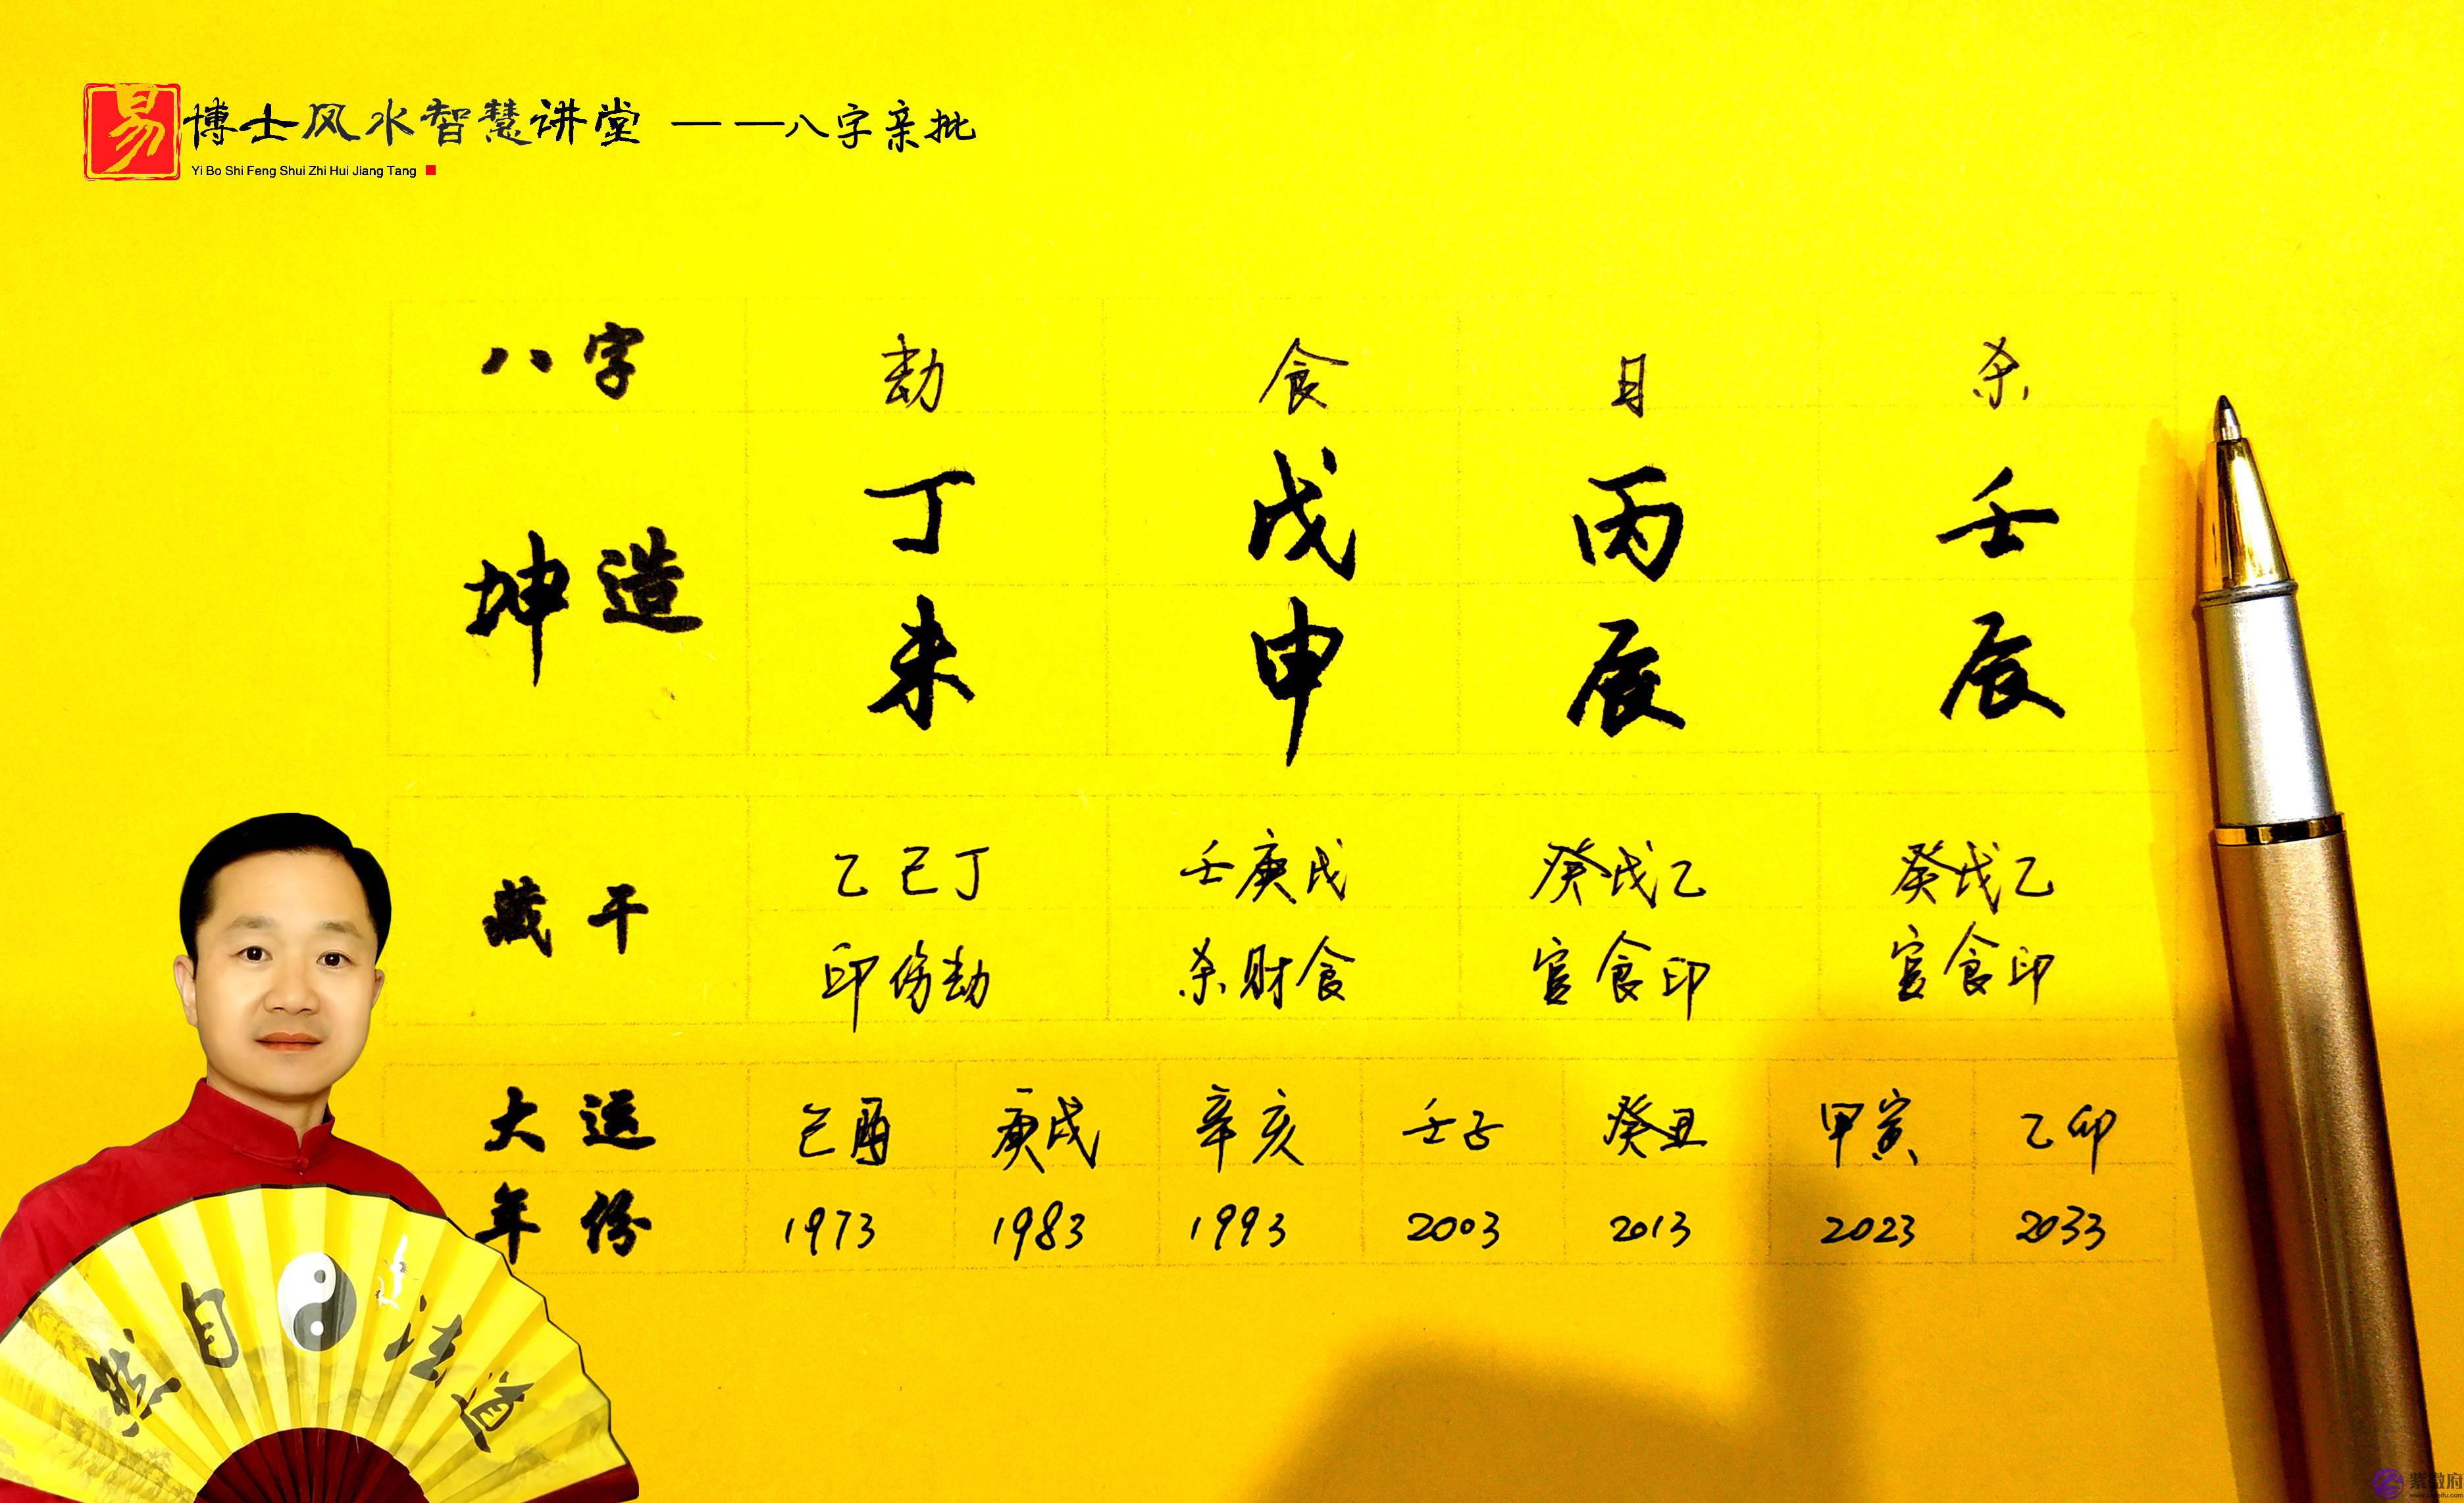 易博士风水智慧讲堂 ——八字亲批
Yi Bo Shi Feng Shui Zhi Hui Jiang Tang
八字 劫 食 日 杀
坤造 丁 戊 丙 壬
未 申 辰 辰
藏干 乙己丁 壬庚戊 癸戊乙 癸戊乙
印伤劫 杀财食 官食印 官食印
大运 己酉 庚戌 辛亥 壬子 癸丑 甲寅 乙卯
年份 1973 1983 1993 2003 2013 2023 2033
道法自然
紫微府